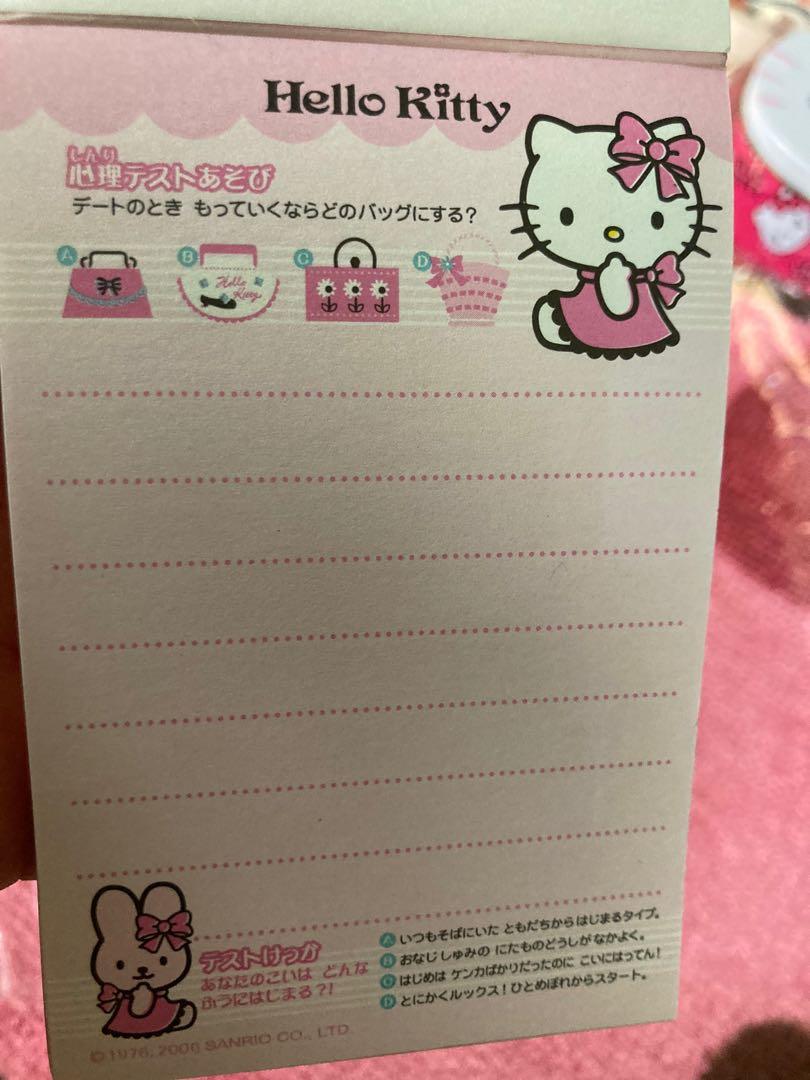 Hello Kitty
しんり
心理テストあそび
デートのとき もっていくならどのバッグにする?
A
B
Hello Kitty
C
D
テストけっか
あなたのこいは どんな
ふうにはじまる?!
A いつもそばにいた ともだちからはじまるタイプ。
B おなじしゅみの にたものどうしがなかよく。
C はじめは ケンカばかりだったのに こいにはってん!
D とにかくルックス!ひとめぼれからスタート。
©1976, 2006 SANRIO CO., LTD.